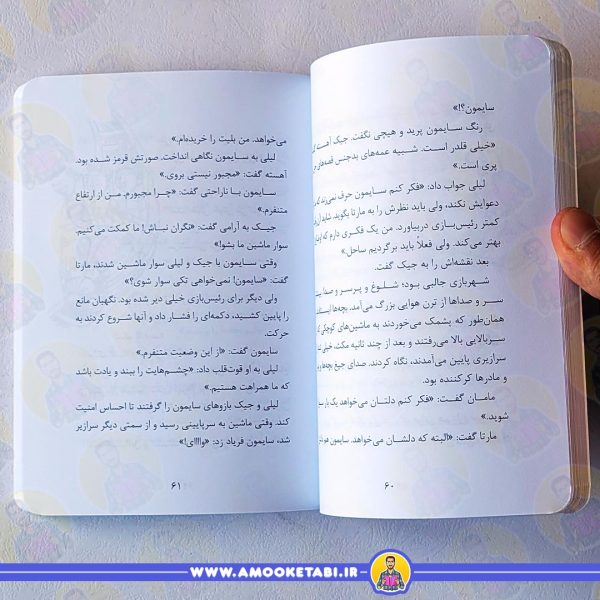 سایمون؟!»
رنگ سایمون پرید و هیچی نگفت. جیک آهسته
«خیلی قلدر است. شبیه عمه‌های بدجنس قصه‌های
پری است.»
لیلی جواب داد: «فکر کنم سایمون حرف نمی‌زند که
دعوایش نکند، ولی باید نظرش را به مارتا بگوید. شاید آن
کمتر رئیس‌بازی دربیاورد. من یک فکری دارم که
بهتر می‌کند. ولی فعلاً باید برگردیم ساحل.»
بعد نقشه‌اش را به جیک گفت.
شهربازی جالبی بود؛ شلوغ و پرسر و صدا.
سر و صداها از ترن هوایی بزرگ می‌آمد. بچه‌ها
همان‌طور که پشمک می‌خوردند به ماشین‌های کوچکی که
سربالایی بالا می‌رفتند و بعد از چند ثانیه مکث، خیلی
سرازیری پایین می‌آمدند، نگاه کردند. صدای جیغ بچه‌ها
و مادرها کرکننده بود.
مامان گفت: «فکر کنم دلتان می‌خواهد یک بار
شوید.»
مارتا گفت: «البته که دلشان می‌خواهد. سایمون هم
۶۰
می‌خواهد. من بلیت را خریده‌ام.»
لیلی به سایمون نگاهی انداخت. صورتش قرمز شده بود.
آهسته گفت: «مجبور نیستی بروی.»
سایمون با ناراحتی گفت: «چرا مجبورم. من از ارتفاع
متنفرم.»
جیک به آرامی گفت: «نگران نباش! ما کمکت می‌کنیم.
سوار ماشین ما بشو!»
وقتی سایمون با جیک و لیلی سوار ماشین شدند، مارتا
گفت: «سایمون! نمی‌خواهی تکی سوار شوی؟»
ولی دیگر برای رئیس‌بازی خیلی دیر شده بود. نگهبان مانع
را پایین کشید، دکمه‌ای را فشار داد و آنها شروع کردند به
حرکت.
سایمون گفت: «از این وضعیت متنفرم.»
لیلی به او قوت‌قلب داد: «چشم‌هایت را ببند و یادت باشد
که ما همراهت هستیم.»
لیلی و جیک بازوهای سایمون را گرفتند تا احساس امنیت
کند. وقتی ماشین به سرپایینی رسید و از سمتی دیگر سرازیر
شد، سایمون فریاد زد: «واااای!»
۶۱
WWW.AMOOKETABI.IR